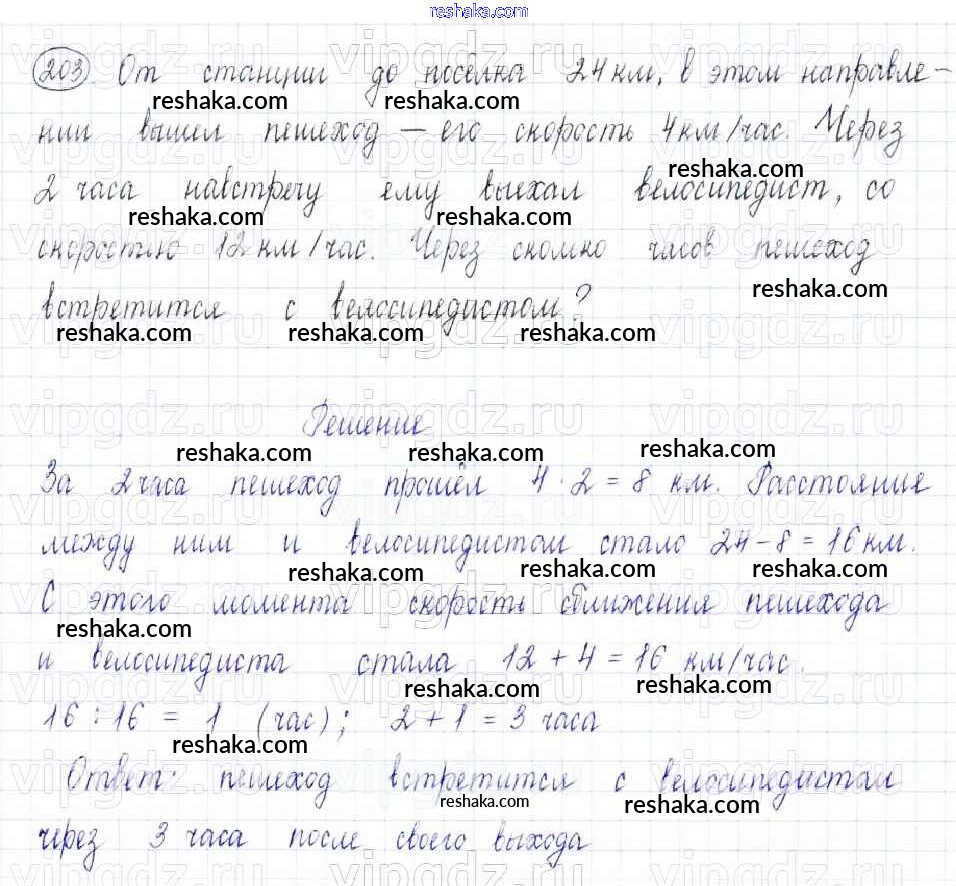 reshaka.com
203 От станции до посёлка 24 км, в этом направле-
reshaka.com reshaka.com reshaka.com
нии вышел пешеход — его скорость 4 км/час. Через
reshaka.com
2 часа навстречу ему выехал велосипедист, со
reshaka.com reshaka.com
скоростью 12 км/час. Через сколько часов пешеход
reshaka.com
встретится с велосипедистом?
reshaka.com reshaka.com reshaka.com
Решение
reshaka.com reshaka.com reshaka.com
За 2 часа пешеход прошёл 4 · 2 = 8 км. Расстояние
между ним и велосипедистом стало 24 – 8 = 16 км.
reshaka.com reshaka.com reshaka.com
С этого момента скорость сближения пешехода
reshaka.com
и велосипедиста стала 12 + 4 = 16 км/час.
reshaka.com reshaka.com
16 : 16 = 1 (час); 2 + 1 = 3 часа
reshaka.com
Ответ: пешеход встретится с велосипедистом
reshaka.com reshaka.com
через 3 часа после своего выхода
vipgdz.ru